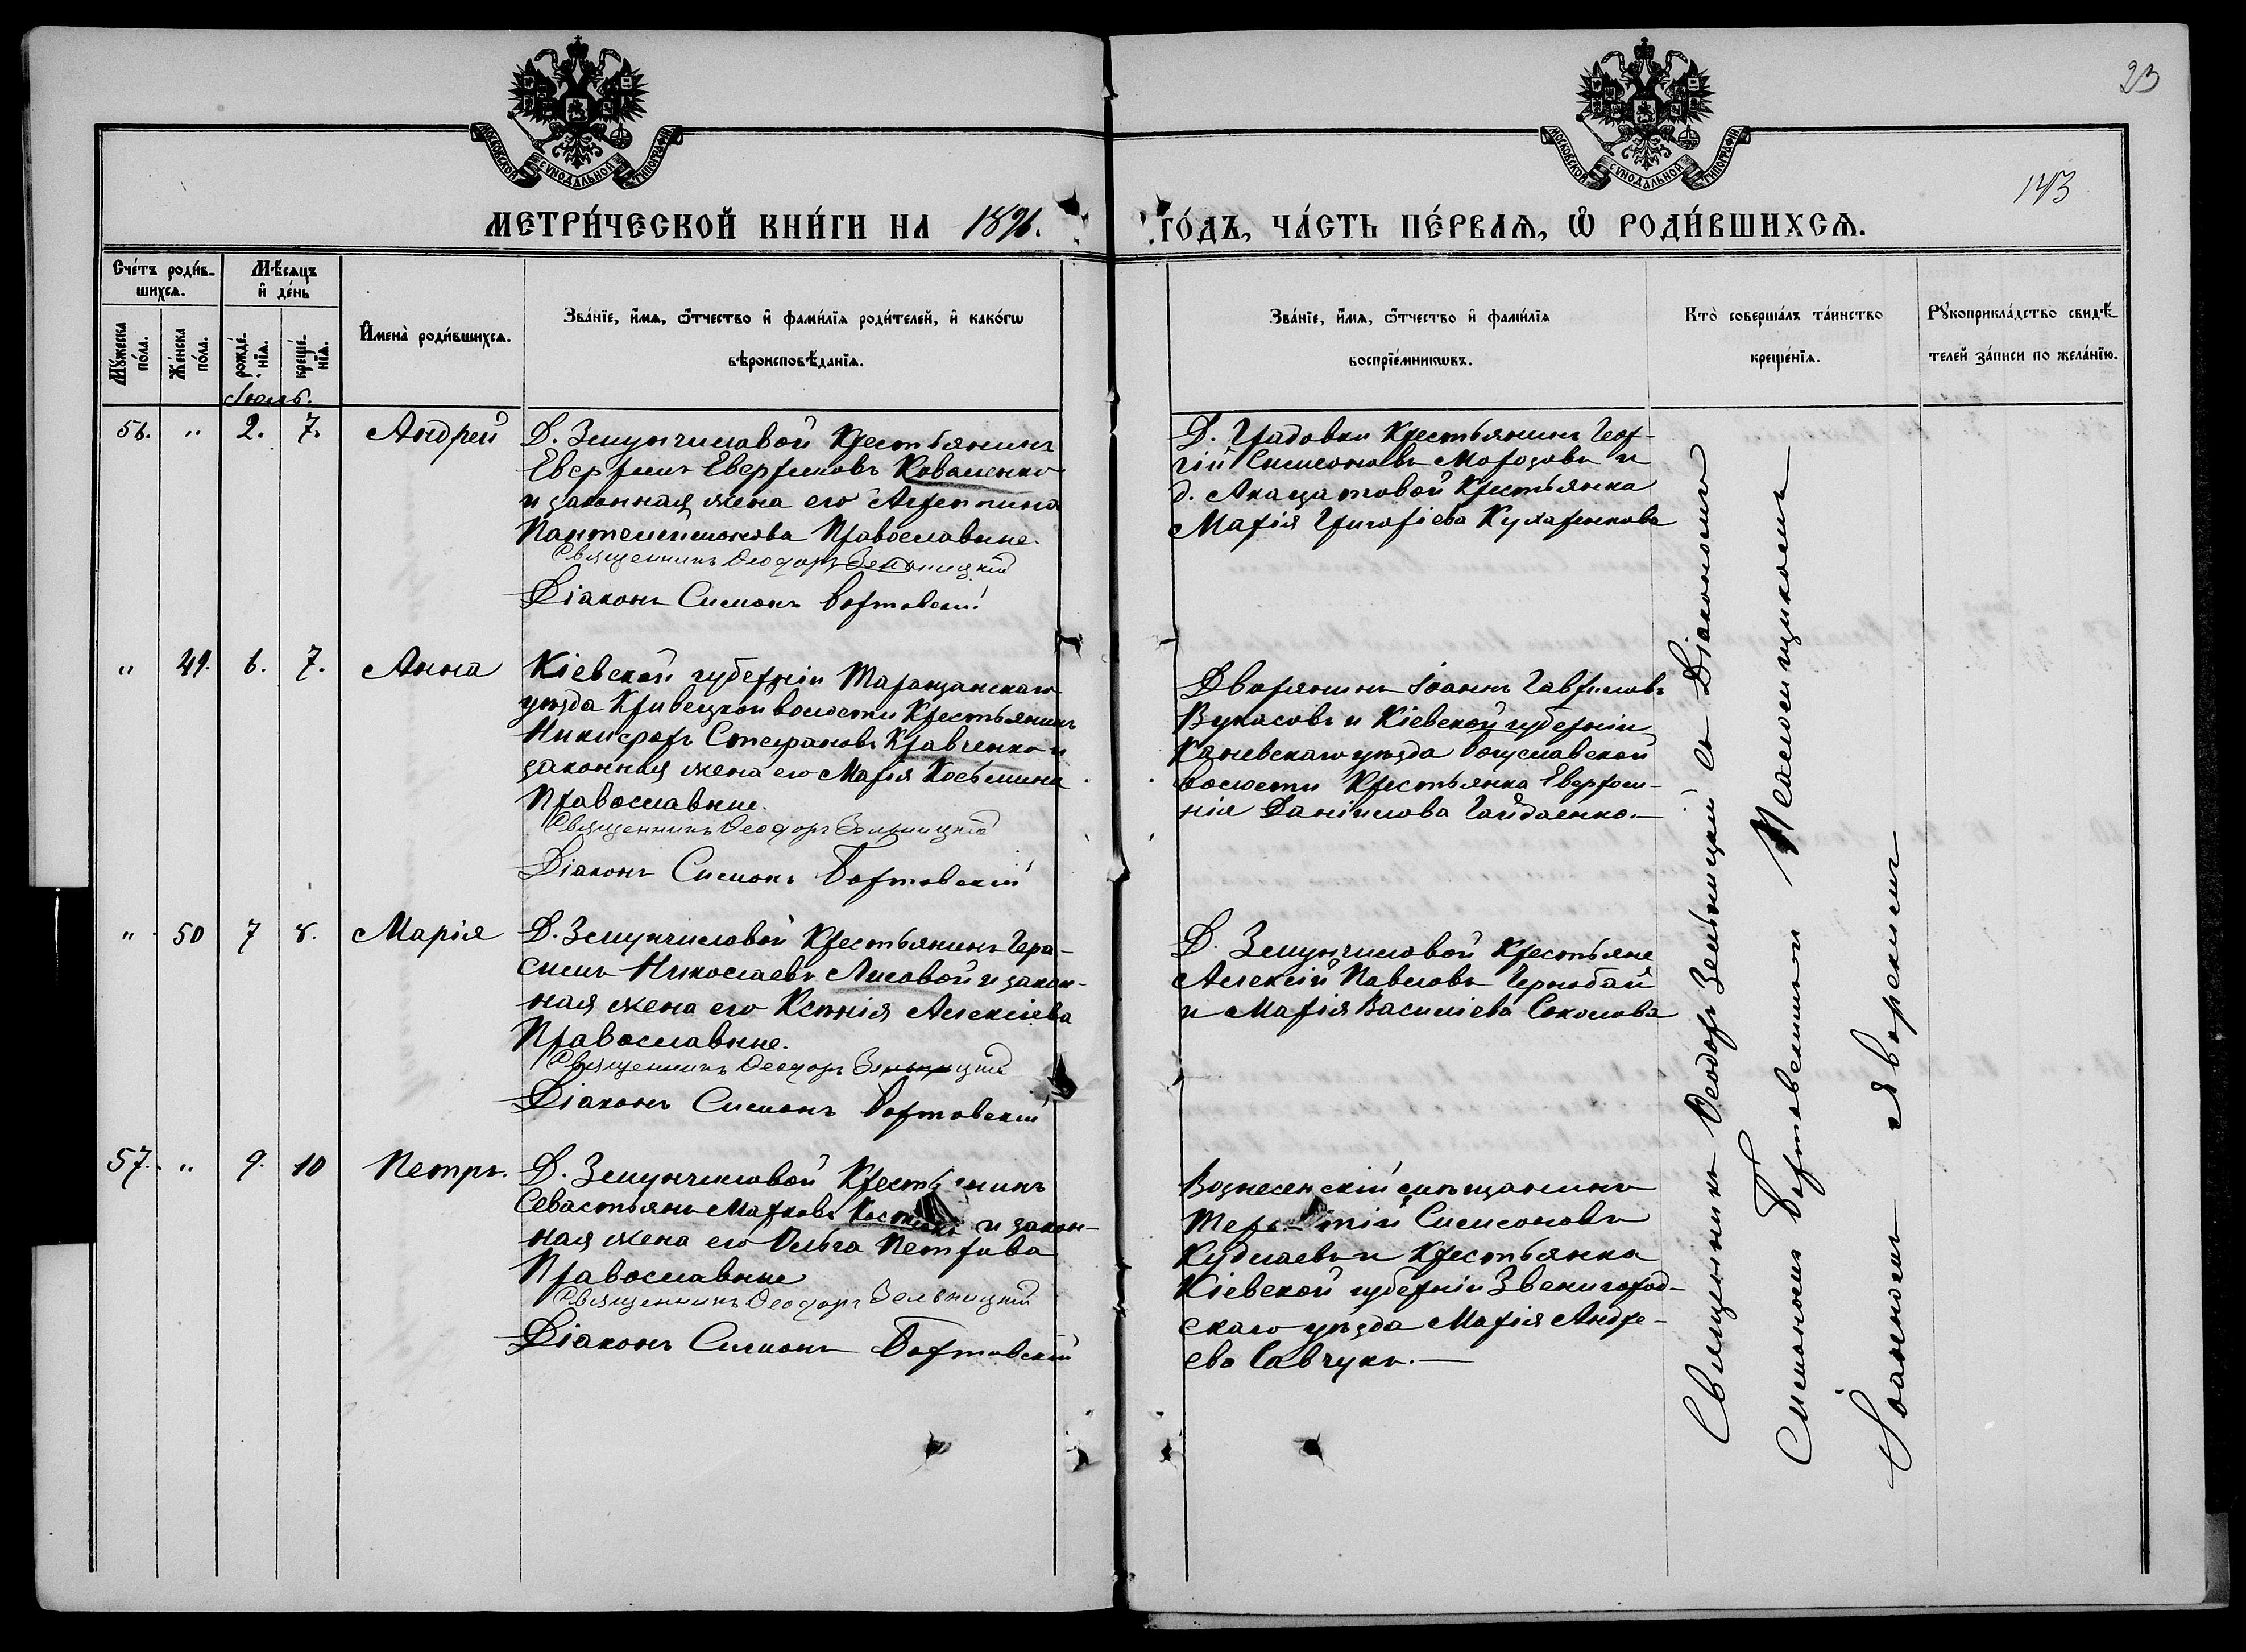 МОСКОВСКОЙ СѴНОДАЛЬНОЙ ТИПОГРАФІИ
МОСКОВСКОЙ СѴНОДАЛЬНОЙ ТИПОГРАФІИ
23
143
МЕТРИ́ЧЕСКОЙ КНИ́ГИ НА 1891.
ГО́ДЪ, ЧА́СТЬ ПЕ́РВАѦ, Ѡ҆ РОДИ́ВШИХСѦ.
Сче́тъ роди́в-
шихсѧ.
Мѣ́сѧцъ
и҆ де́нь
Мꙋ́жеска
по́ла.
Же́нска
по́ла.
рожде́-
нїѧ.
креще́-
нїѧ.
И҆мена̀ роди́вшихсѧ.
Зва́нїе, и҆́мѧ, ѻ҆́тчество и҆ фами́лїѧ роди́телей, и҆ како́гѡ
вѣроисповѣ́данїѧ.
Зва́нїе, и҆́мѧ, ѻ҆́тчество и҆ фами́лїѧ
воспрїе́мникѡвъ.
Кто̀ соверша́лъ та́инство
креще́нїѧ.
Рꙋкоприкла́дство свидѣ́-
телей за́писи по жела́нїю.
Іюль.
56. " 2. 7. Андрей
Д. Змунчиловой Крестьянинъ
Евфимъ Евфимовъ Коваленко
и законная жена его Агрепина
Пантелеимонова Православные.
Священникъ Ѳеодоръ Зельницкій
Діаконъ Симонъ Бортовскій
Д. Градовки Крестьянинъ Геор-
гій Симеоновъ Морозовъ и
д. Акацатовой Крестьянка
Марія Григоріева Кухаренкова
" 49. 6. 7. Анна
Кіевской губерніи Таращанскаго
уѣзда Кривецкой волости Крестьянинъ
Никифоръ Стефановъ Кравченко и
законная жена его Марія Косьмина
Православные.
Священникъ Ѳеодоръ Зельницкій
Діаконъ Симонъ Бортовскій
Дворянинъ Іоаннъ Гавриловъ
Вукасовъ и Кіевской губерніи
Каневскаго уѣзда Богуславской
волости Крестьянка Евфроси-
нія Даніилова Гайдаенко.—
" 50 7 8. Марія
Д. Змунчиловой Крестьянинъ Гера-
симъ Николаевъ Лисовой и закон-
ная жена его Ксенія Алексіева
Православные.
Священникъ Ѳеодоръ Зельницкій
Діаконъ Симонъ Бортовскій
Д. Змунчиловой Крестьяне
Алексій Павловъ Чернобай
и Марія Василіева Соколова
57. " 9. 10 Петръ.
Д. Змунчиловой Крестьянинъ
Севастьянъ Марковъ и закон-
ная жена его Ольга Петрова
Православные
Священникъ Ѳеодоръ Зельницкій
Діаконъ Симонъ Бортовскій
Вознесенскій мѣщанинъ
Симеоновъ
Кудлаевъ и Крестьянка
Кіевской губерніи Звенигород-
скаго уѣзда Марія Андре-
ева Савчукъ.—
Священникъ Ѳеодоръ Зельницкій съ Діакономъ
Симономъ Бортовскимъ и Псаломщикомъ
Іоанномъ Яворскимъ